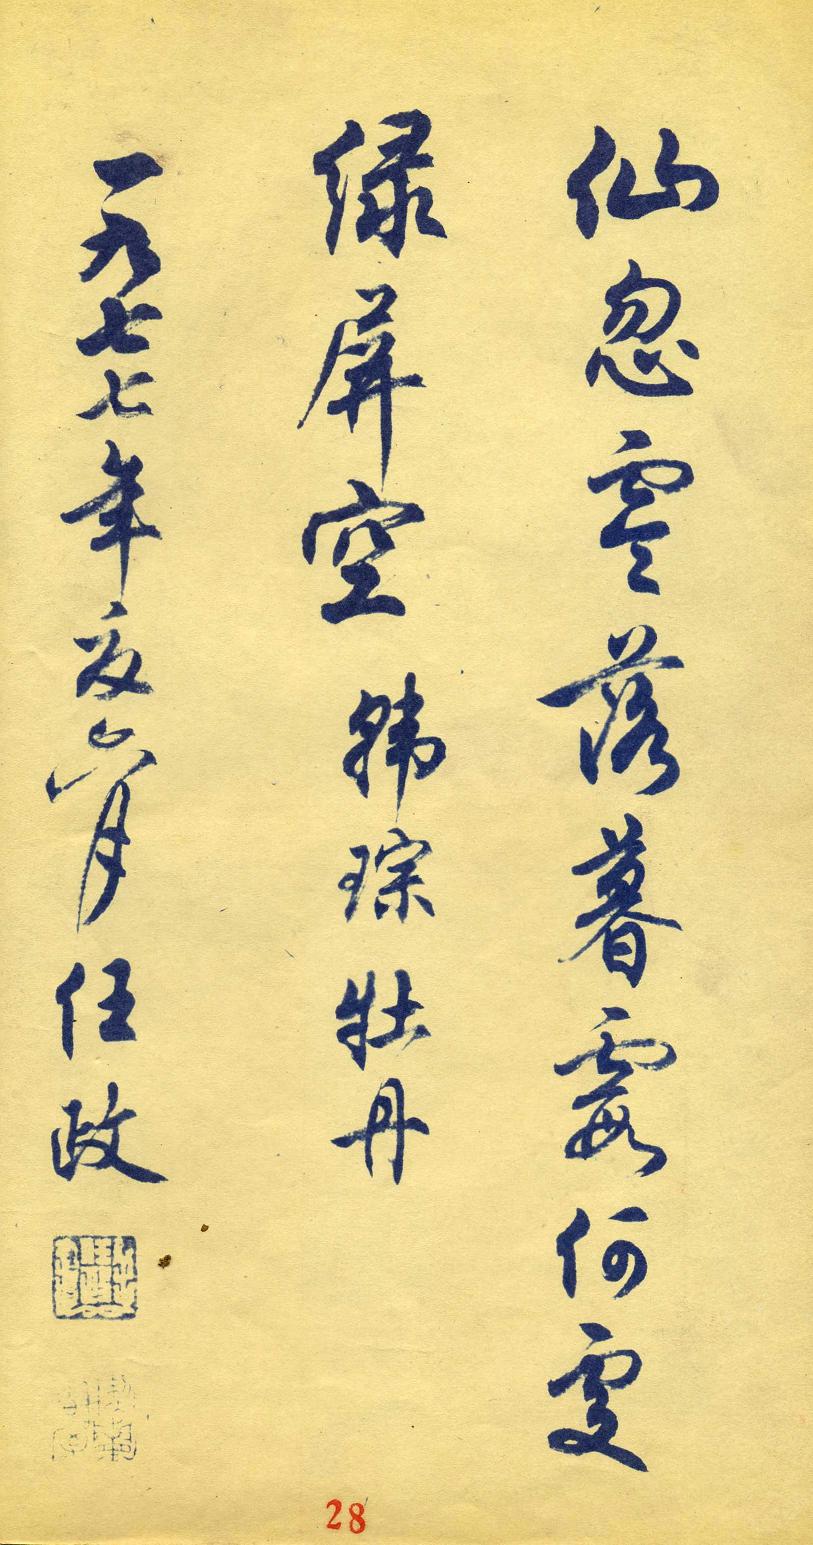 仙忽零落暮霞何處
绿屏空 韩琮牡丹
一九七七年夏六月任政
28